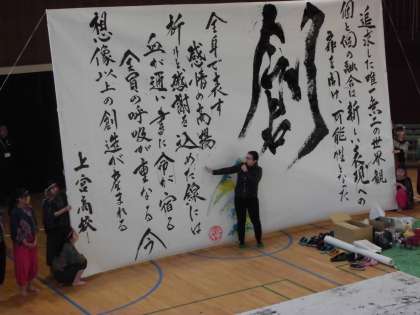 追求した唯一無二の世界観
個と個の融合は新しい表現への
扉を開け、可能性
創
全身で表す
感情の高揚
祈りと感謝を込めた線には
血が通い書に命が宿る
全員の呼吸が重なる今
想像以上の創造が産まれる
上宮高校